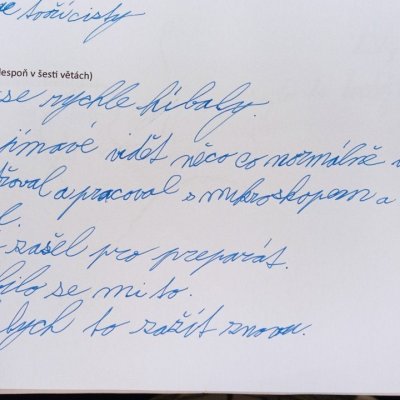 tvořící sty
lespoň v šesti větách)
se rychle híbaly.
jímavé vidět něco co normálně
oval a pracoval s mikroskopem a
zašel pro preparát.
bilo se mi to.
bych to zažít znovu.